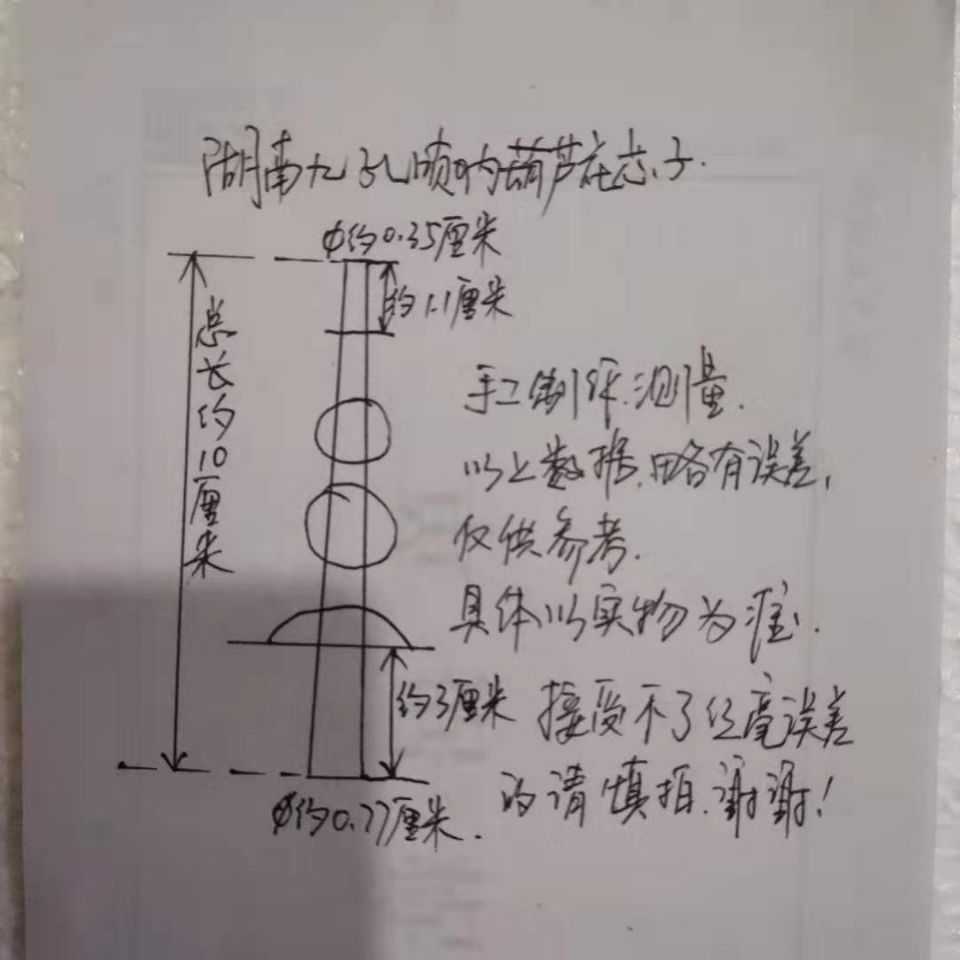 湖南九孔唢呐葫芦花芯子.
φ约0.35厘米
约1.1厘米
总长约10厘米
手工制作.测量.
以上数据.略有误差,
仅供参考.
具体以实物为准.
约3厘米
接受不了丝毫误差
的请慎拍.谢谢!
φ约0.77厘米.